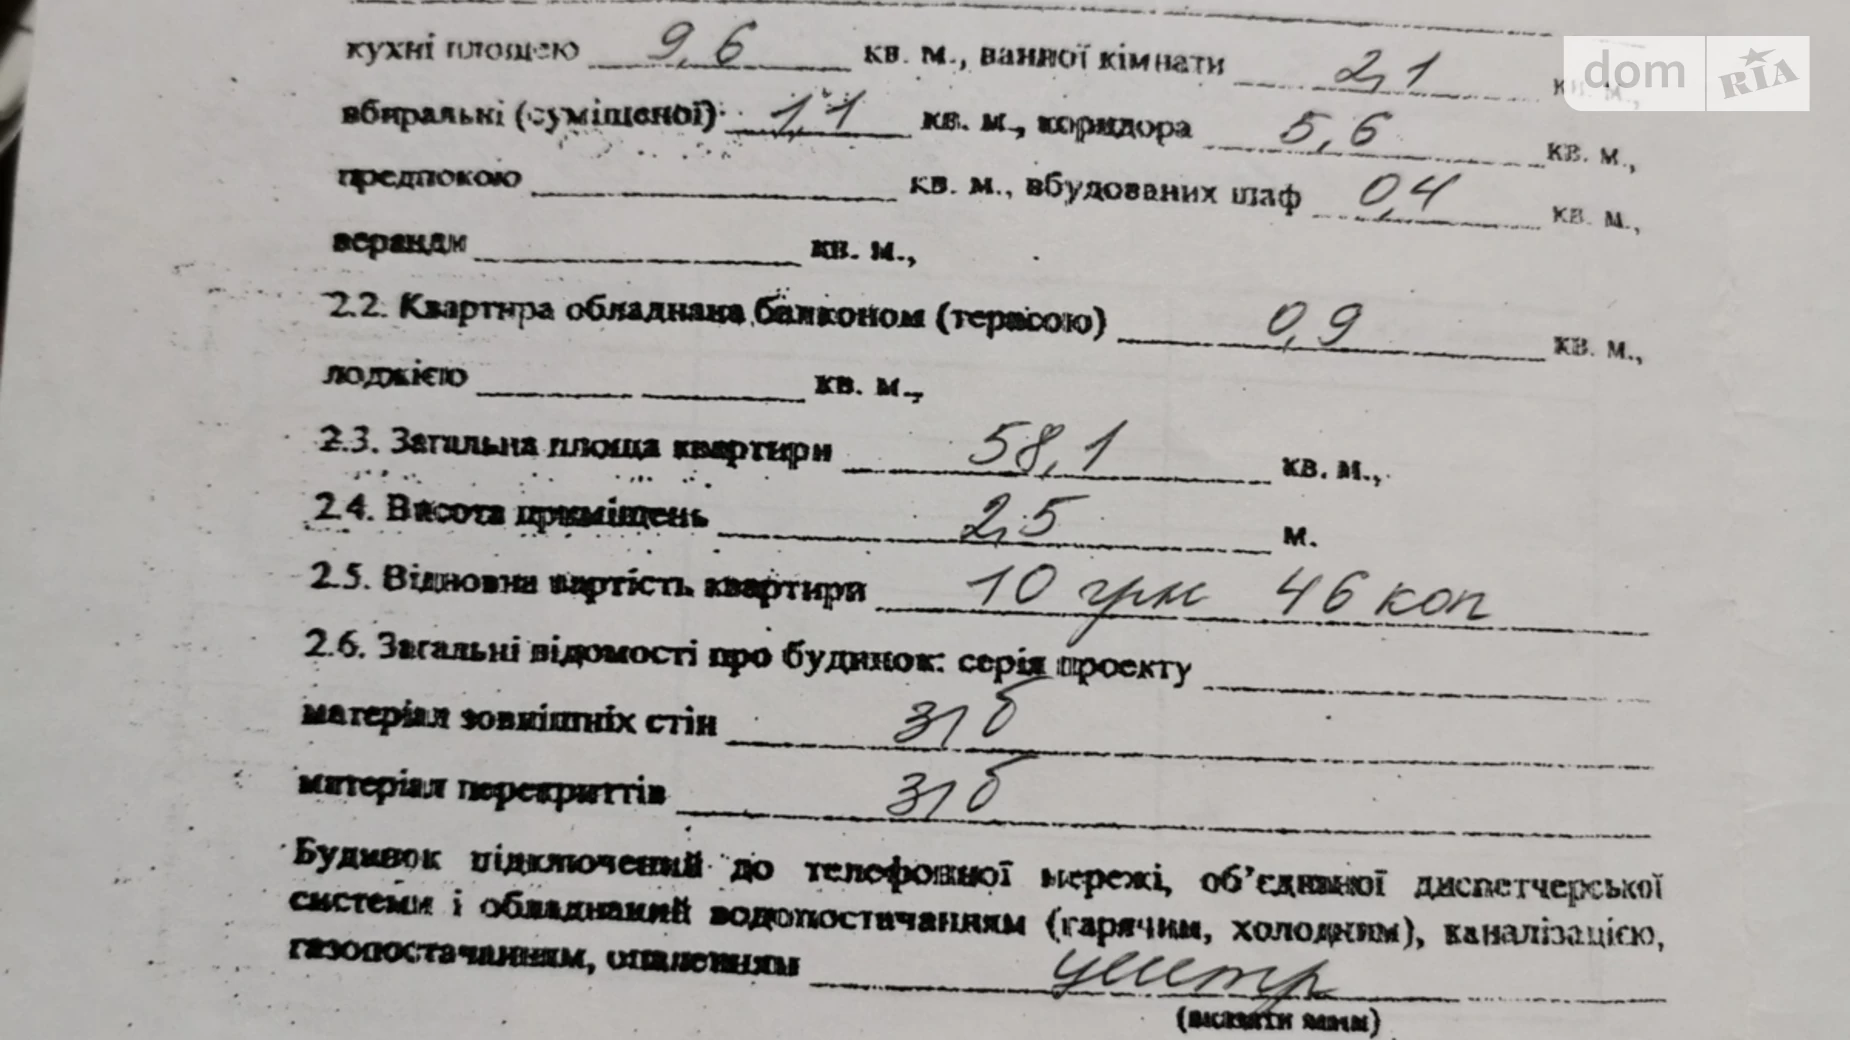 кухні площею 9,6 кв. м., ванної кімнати 2,1 кв. м.,
вбиральні (суміщеної) 1,1 кв. м., коридора 5,6 кв. м.,
предпокою кв. м., вбудованих шаф 0,4 кв. м.,
веранди кв. м.,
2.2. Квартира обладнана балконом (терасою) 0,9 кв. м.,
лоджією кв. м.,
2.3. Загальна площа квартири 58,1 кв. м.,
2.4. Висота приміщень 2,5 м.
2.5. Відновна вартість квартири 10 грн 46 коп
2.6. Загальні відомості про будинок: серія проекту
матеріал зовнішніх стін з/б
матеріал перекриттів з/б
Будинок підключений до телефонної мережі, об'єднаної диспетчерської
системи і обладнаний водопостачанням (гарячим, холодним), каналізацією,
газопостачанням, опаленням центр
(вказати яким)
dom RIA